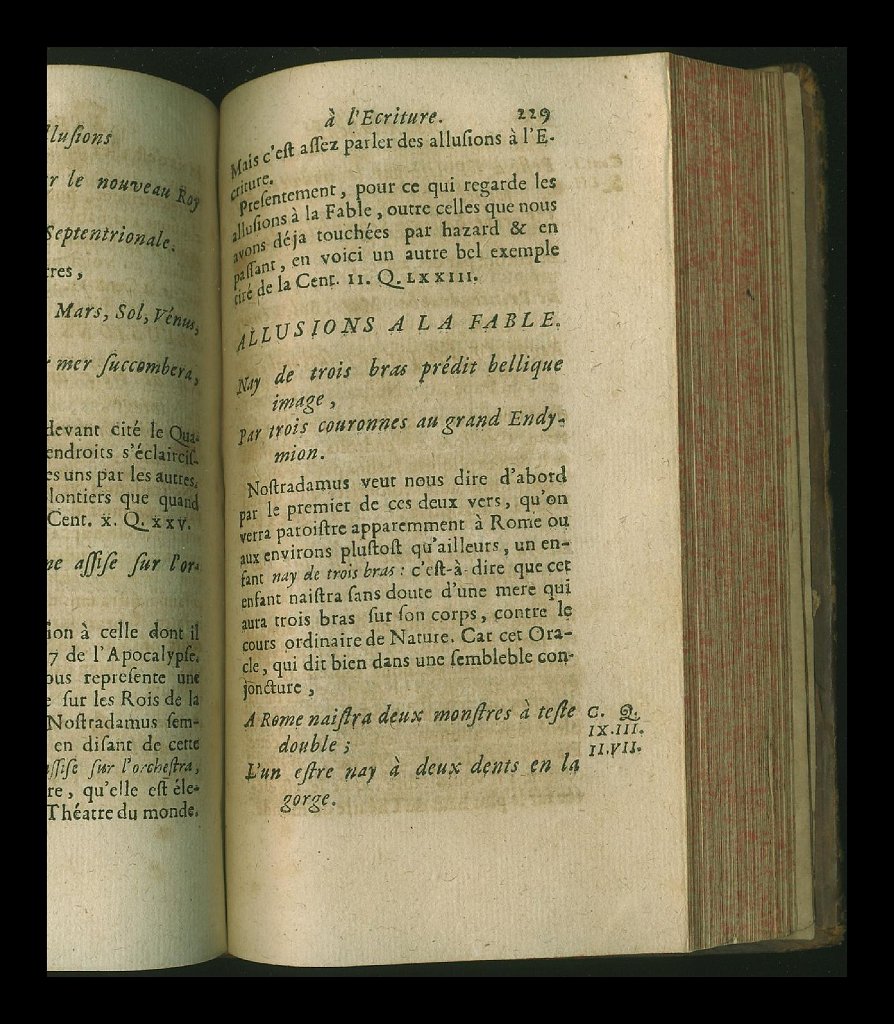 llusions
r le nouveau Roy
Septentrionale.
res,
Mars, Sol, Vénus,
mer succombera,
devant cité le Qua-
endroits s'éclaircis-
es uns par les autres.
lontiers que quand
Cent. x. Q. xxv.
ne assise sur l'or-
ion à celle dont il
7 de l'Apocalypse.
ous represente une
sur les Rois de la
Nostradamus sem-
en disant de cette
assise sur l'orchestra,
re, qu'elle est éle-
Théatre du monde.
à l'Ecriture. 229
Mais c'est assez parler des allusions à l'E-
criture.
Presentement, pour ce qui regarde les
allusions à la Fable, outre celles que nous
avons déja touchées par hazard & en
passant, en voici un autre bel exemple
tiré de la Cent. II. Q. LXXIII.
ALLUSIONS A LA FABLE.
Nay de trois bras prédit bellique
image,
Par trois couronnes au grand Endy-
mion.
Nostradamus veut nous dire d'abord
par le premier de ces deux vers, qu'on
verra paroistre apparemment à Rome ou
aux environs plustost qu'ailleurs, un en-
fant nay de trois bras : c'est-à-dire que cet
enfant naistra sans doute d'une mere qui
aura trois bras sur son corps, contre le
cours ordinaire de Nature. Car cet Ora-
cle, qui dit bien dans une sembleble con-
joncture,
A Rome naistra deux monstres à teste
double ;
L'un estre nay à deux dents en la
gorge.
C. Q.
IX.III.
II.VII.